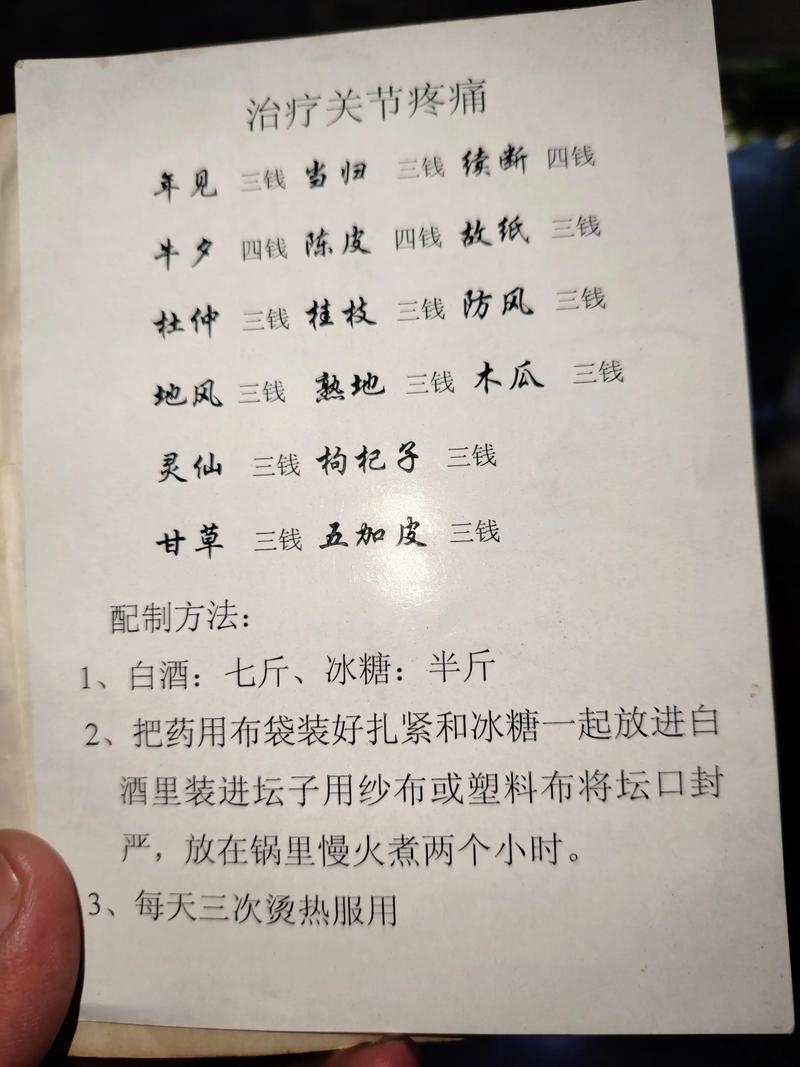 治疗关节疼痛
年见 三钱 当归 三钱 续断 四钱
牛夕 四钱 陈皮 四钱 故纸 三钱
杜仲 三钱 桂枝 三钱 防风 三钱
地风 三钱 熟地 三钱 木瓜 三钱
灵仙 三钱 枸杞子 三钱
甘草 三钱 五加皮 三钱
配制方法：
1、白酒：七斤、冰糖：半斤
2、把药用布袋装好扎紧和冰糖一起放进白
酒里装进坛子用纱布或塑料布将坛口封
严，放在锅里慢火煮两个小时。
3、每天三次烫热服用